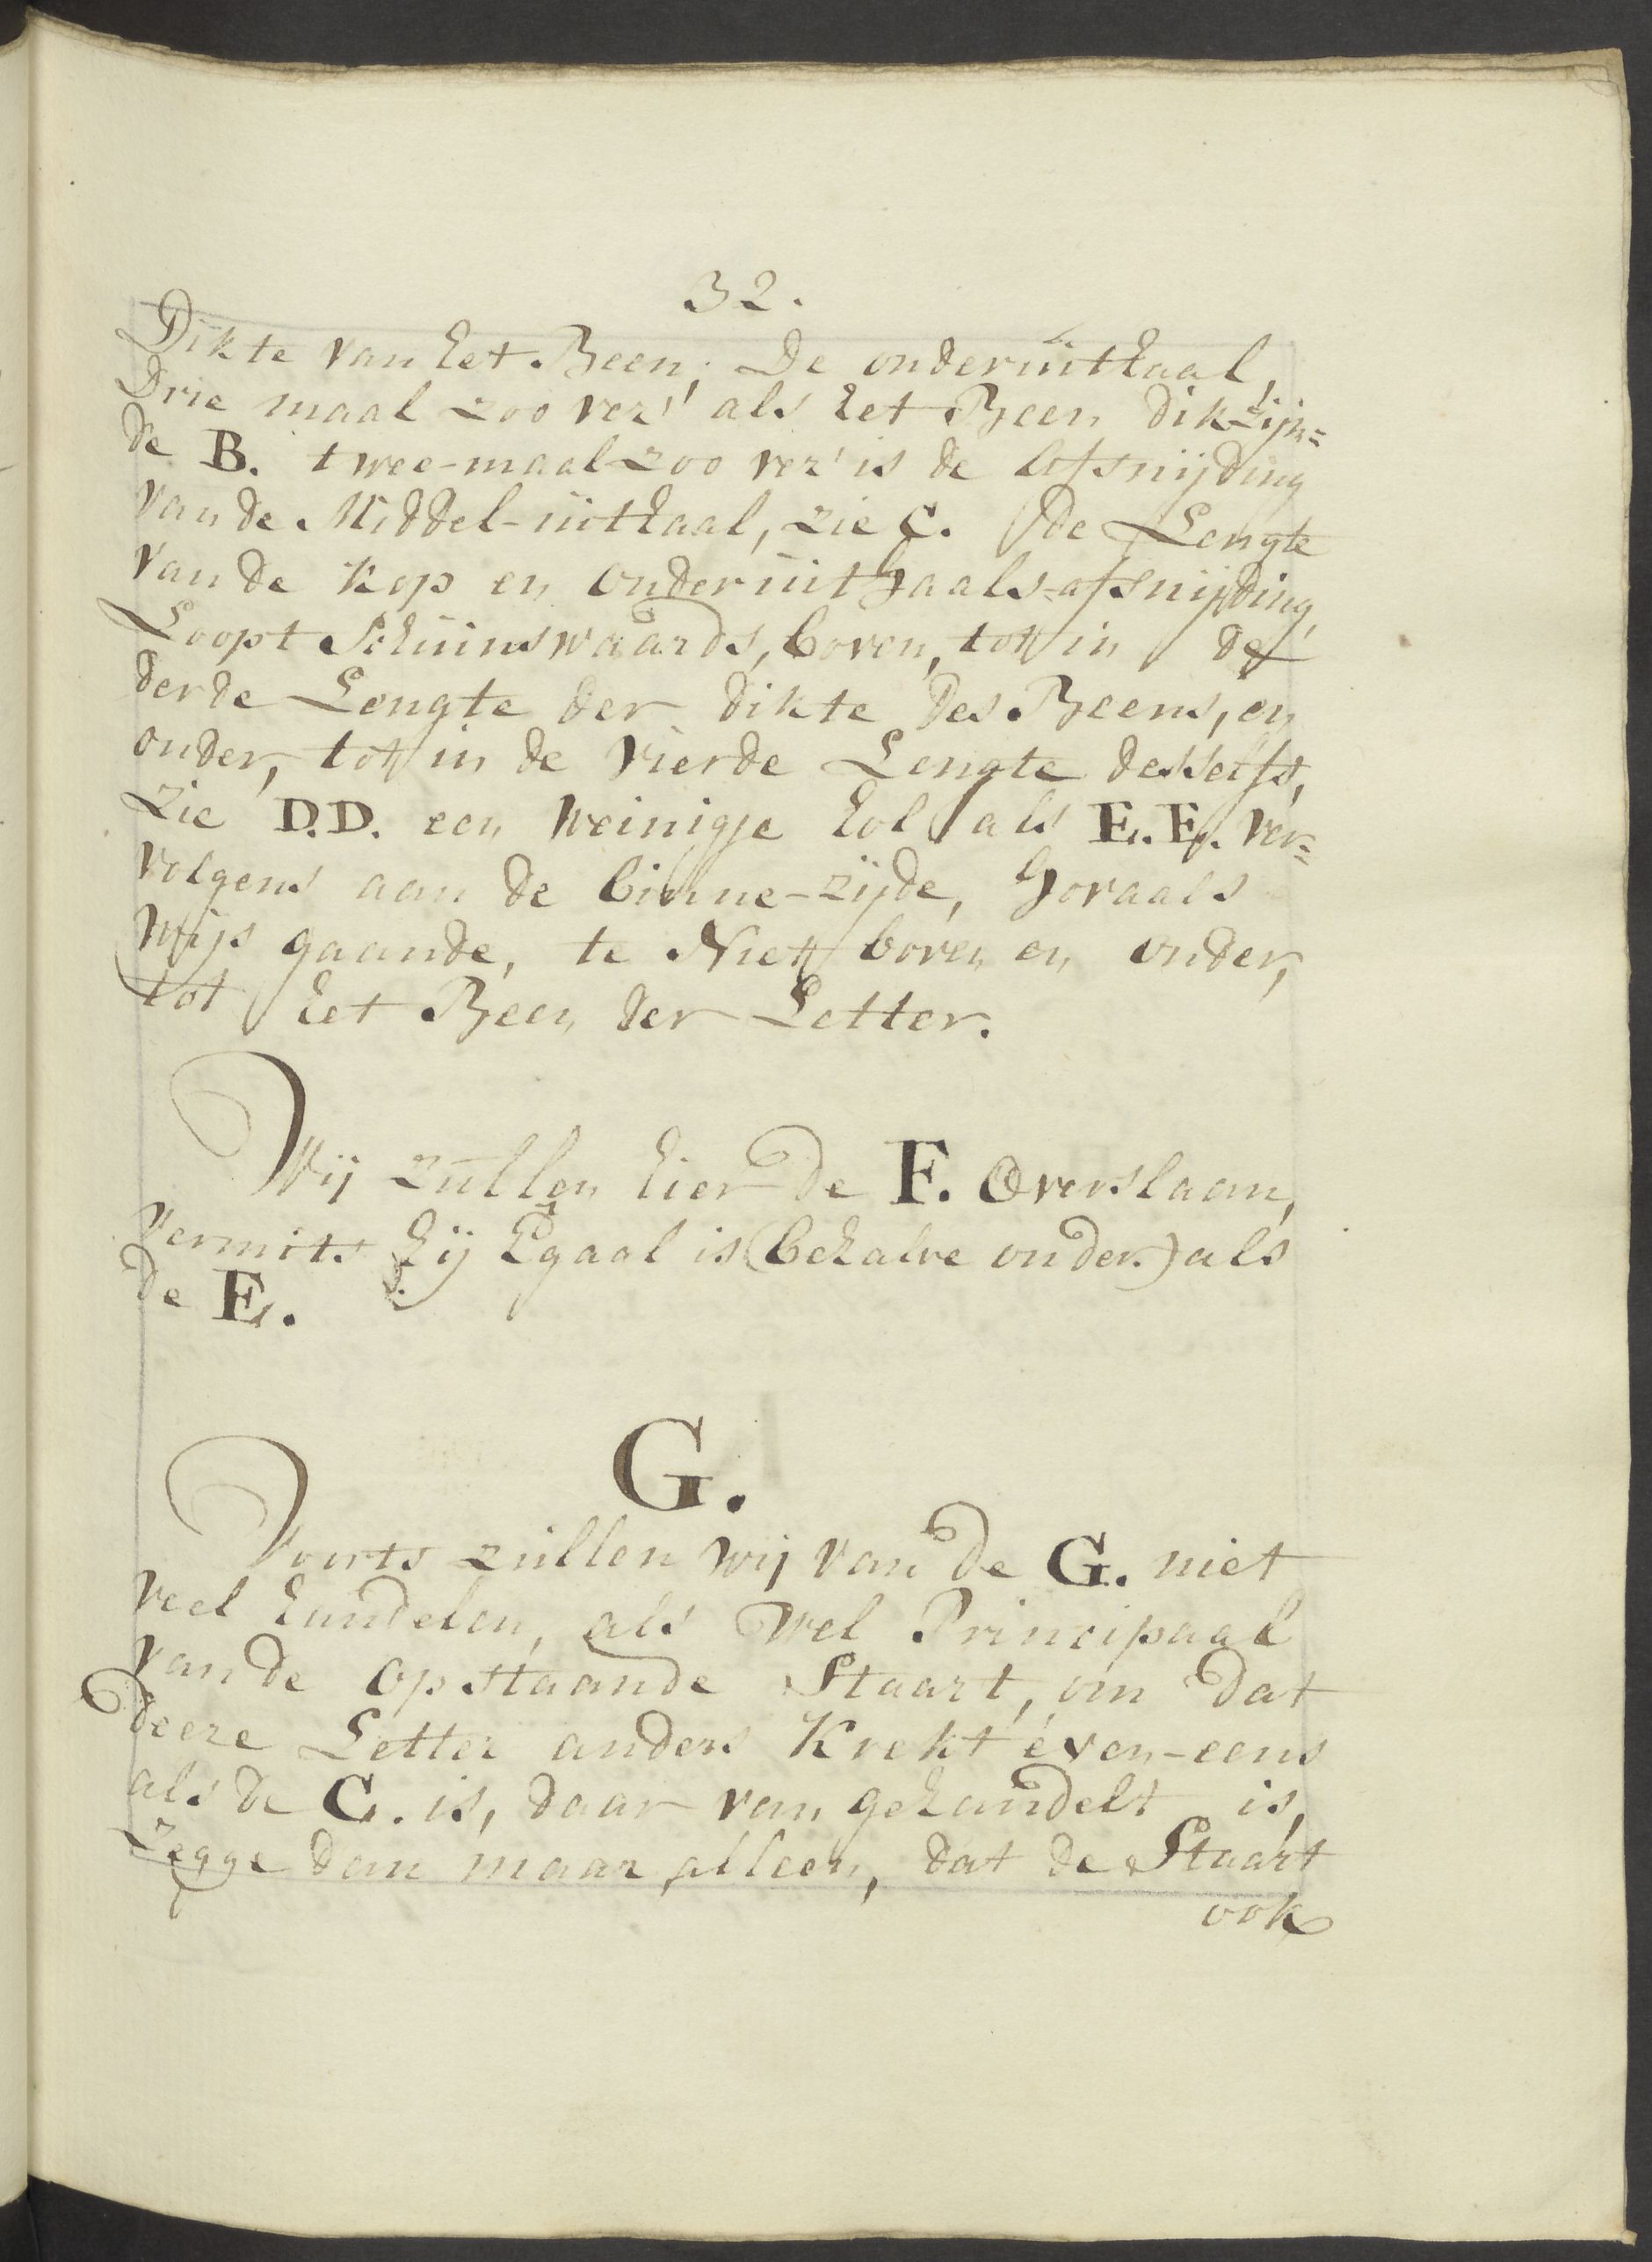 32.
Dikte van het Been; De onderuithaal,
Drie maal zoo ver' als het Been dik zijn=
de B. twee-maal zoo ver' is de Afsnijding
van de Middel-uithaal, zie C. de Lengte
van de Kop en Onderuithaals-afsnijding,
Loopt Schuinswaards, boven, tot in de
derde Lengte der dikte des Beens, en
onder, tot in de Vierde Lengte desselfs,
zie D.D. een Weinigje hol als E.E. ver=
volgens aan de binne-zijde, Horaals
Wijs gaande, te Niet boven en onder,
tot het Been der Letter.
Wij zullen hier de F. Overslaan,
Vermits hij Egaal is (behalve onder.) als
de E.
G.
Voorts zullen wij van de G. niet
veel handelen, als Wel Principaal
van de Opstaande Staart, om dat
deeze Letter anders Krekt éven-eens
als de C. is, daar van gehandelt is,
Zegge dan maar alleen, dat de Staart
ook